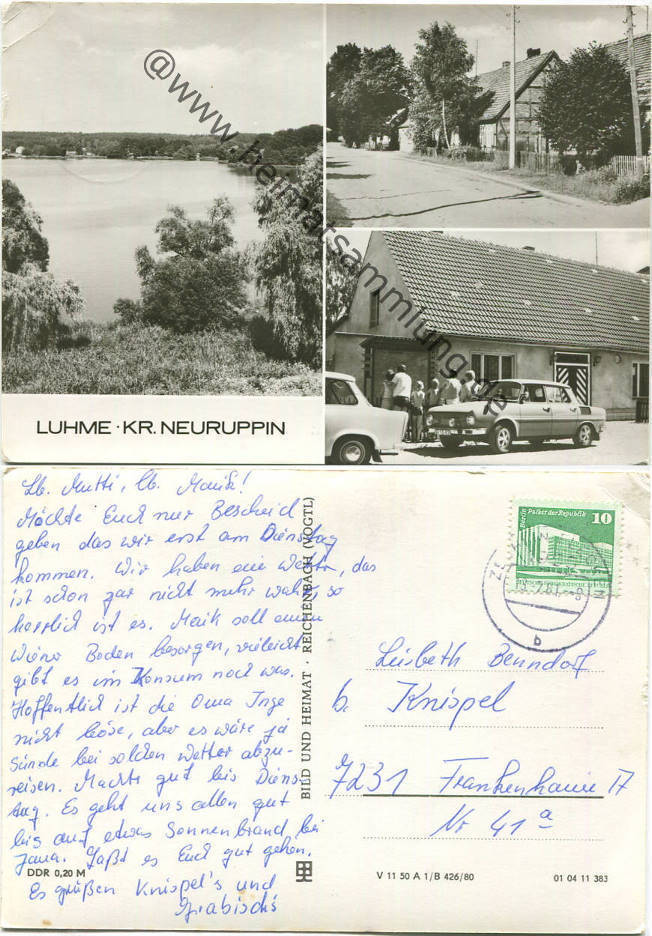 @www.heimatsammlung.de
LUHME · KR. NEURUPPIN
Lb. Mutti, lb. Maik!
Möchte Euch nur Bescheid
geben das wir erst am Dienstag
kommen. Wir haben ein Wetter, das
ist schon gar nicht mehr wahr, so
herrlich ist es. Maik soll einen
Wiener Boden besorgen, vieleicht
gibt es im Konsum noch was.
Hoffentlich ist die Oma Inge
nicht böse, aber es wäre ja
Sünde bei solchen Wetter abzu-
reisen. Machts gut bis Diens-
tag. Es geht uns allen gut
bis auf etwas Sonnenbrand bei
Jana. Laßt es Euch gut gehen.
Es grüßen Knispel's und
Grabisch's
DDR 0,20 M
BILD UND HEIMAT · REICHENBACH (VOGTL)
Berlin Palast der Republik
10
b
Lisbeth Benndorf
b. Knispel
7231 Frankenhain 17
Nr 41a
V 11 50 A 1/B 426/80
01 04 11 383